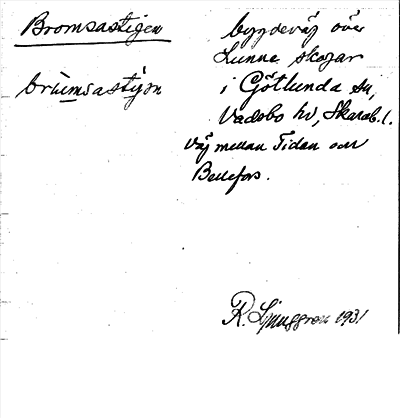 Bromsastigen
brùmsastı̇́gən
bygdeväg över
Lunne skogar
i Götlunda sn,
Vadsbo hd, Skarab. l.
Väg mellan Tidan och
Bellefors.
R. Ljunggren 1931